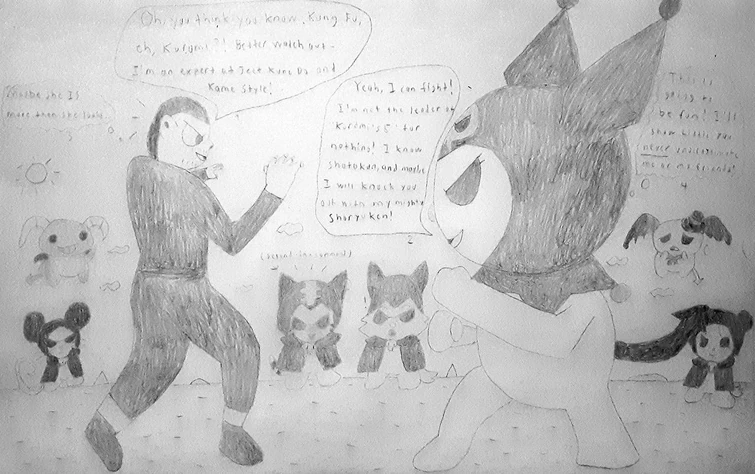 Oh, you think you know Kung Fu,
eh, Kuromi?! Better watch out -
I'm an expert at Jeet Kune Do and
Kame Style!
Yeah, I can fight!
I'm not the leader of
Kuromi's 5 for
nothing! I know
shotokan, and maybe
I will knock you
out with my mighty
Shoryuken!
2
Maybe she is
more than she looks.
3
This is
going to
be fun! I'll
show
never underestimate
me or my friends!
4